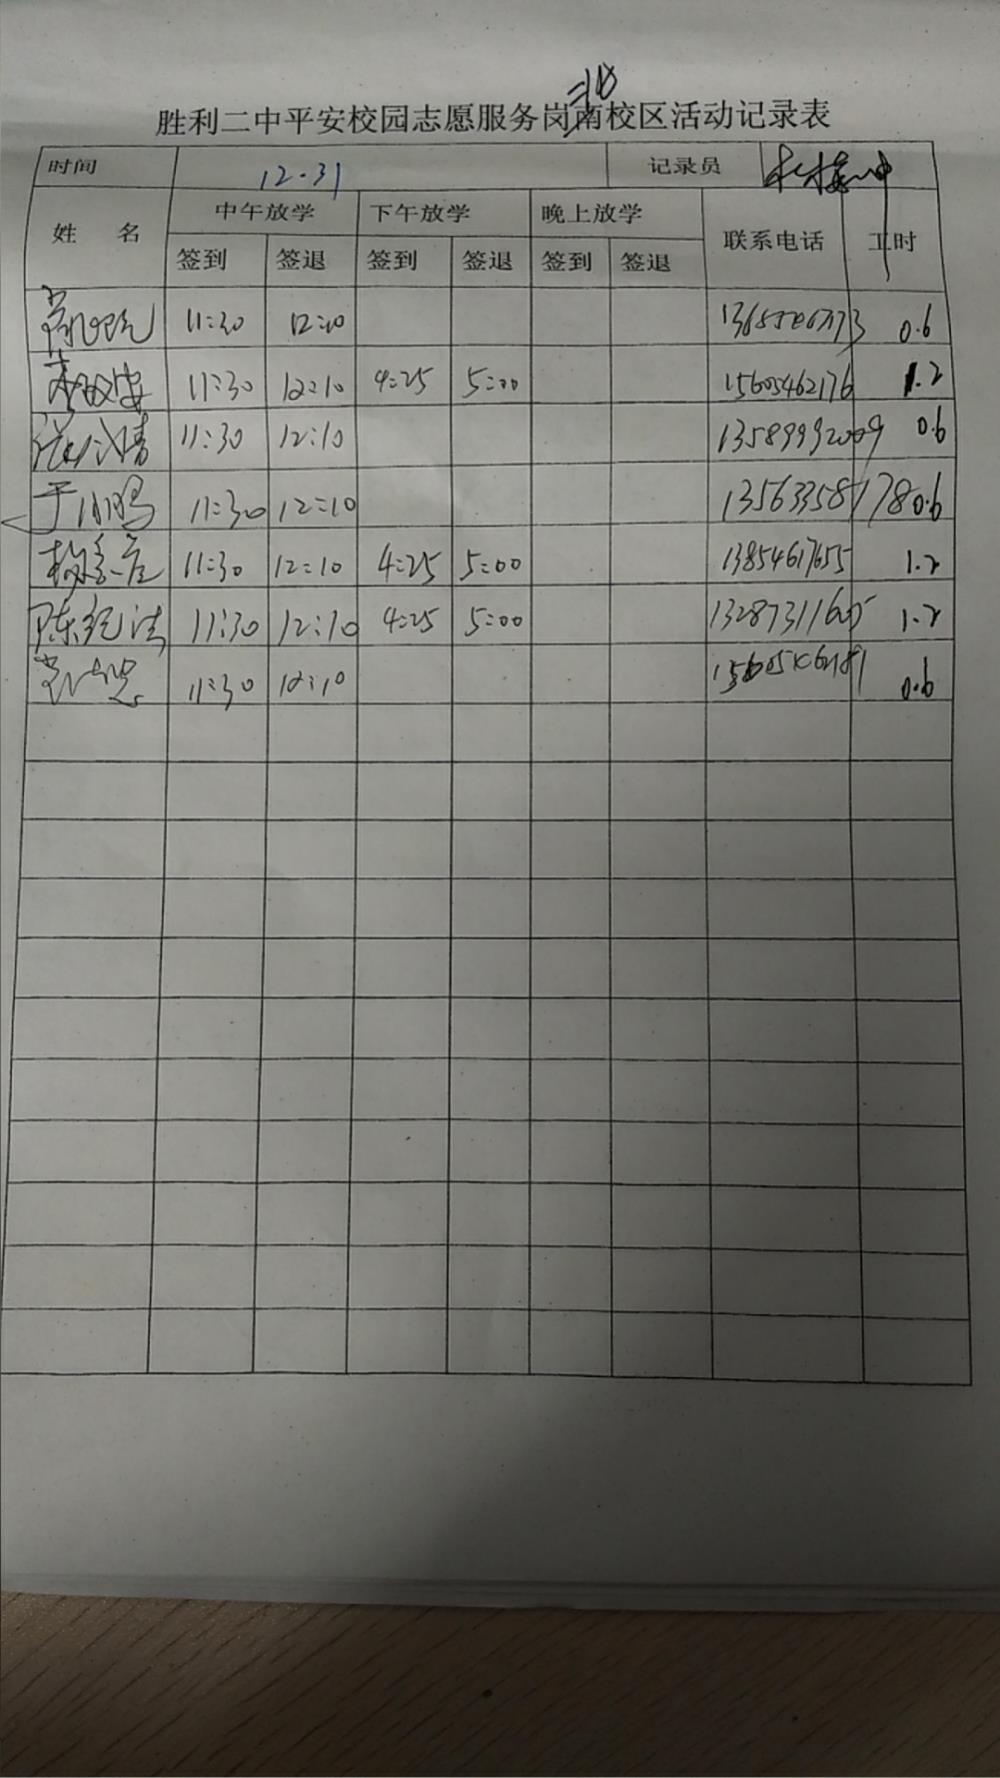 北
胜利二中平安校园志愿服务岗南校区活动记录表
时间 12.31 记录员
姓 名 中午放学 下午放学 晚上放学 联系电话 工时
签到 签退 签到 签退 签到 签退
11:30 12:10 0.6
11:30 12:10 4:25 5:00 15605462176 1.2
11:30 12:10 13589992009 0.6
11:30 12:10 13563358178 0.6
11:30 12:10 4:25 5:00 13854617655 1.2
陈纪法 11:30 12:10 4:25 5:00 13287311605 1.2
11:30 12:10 0.6